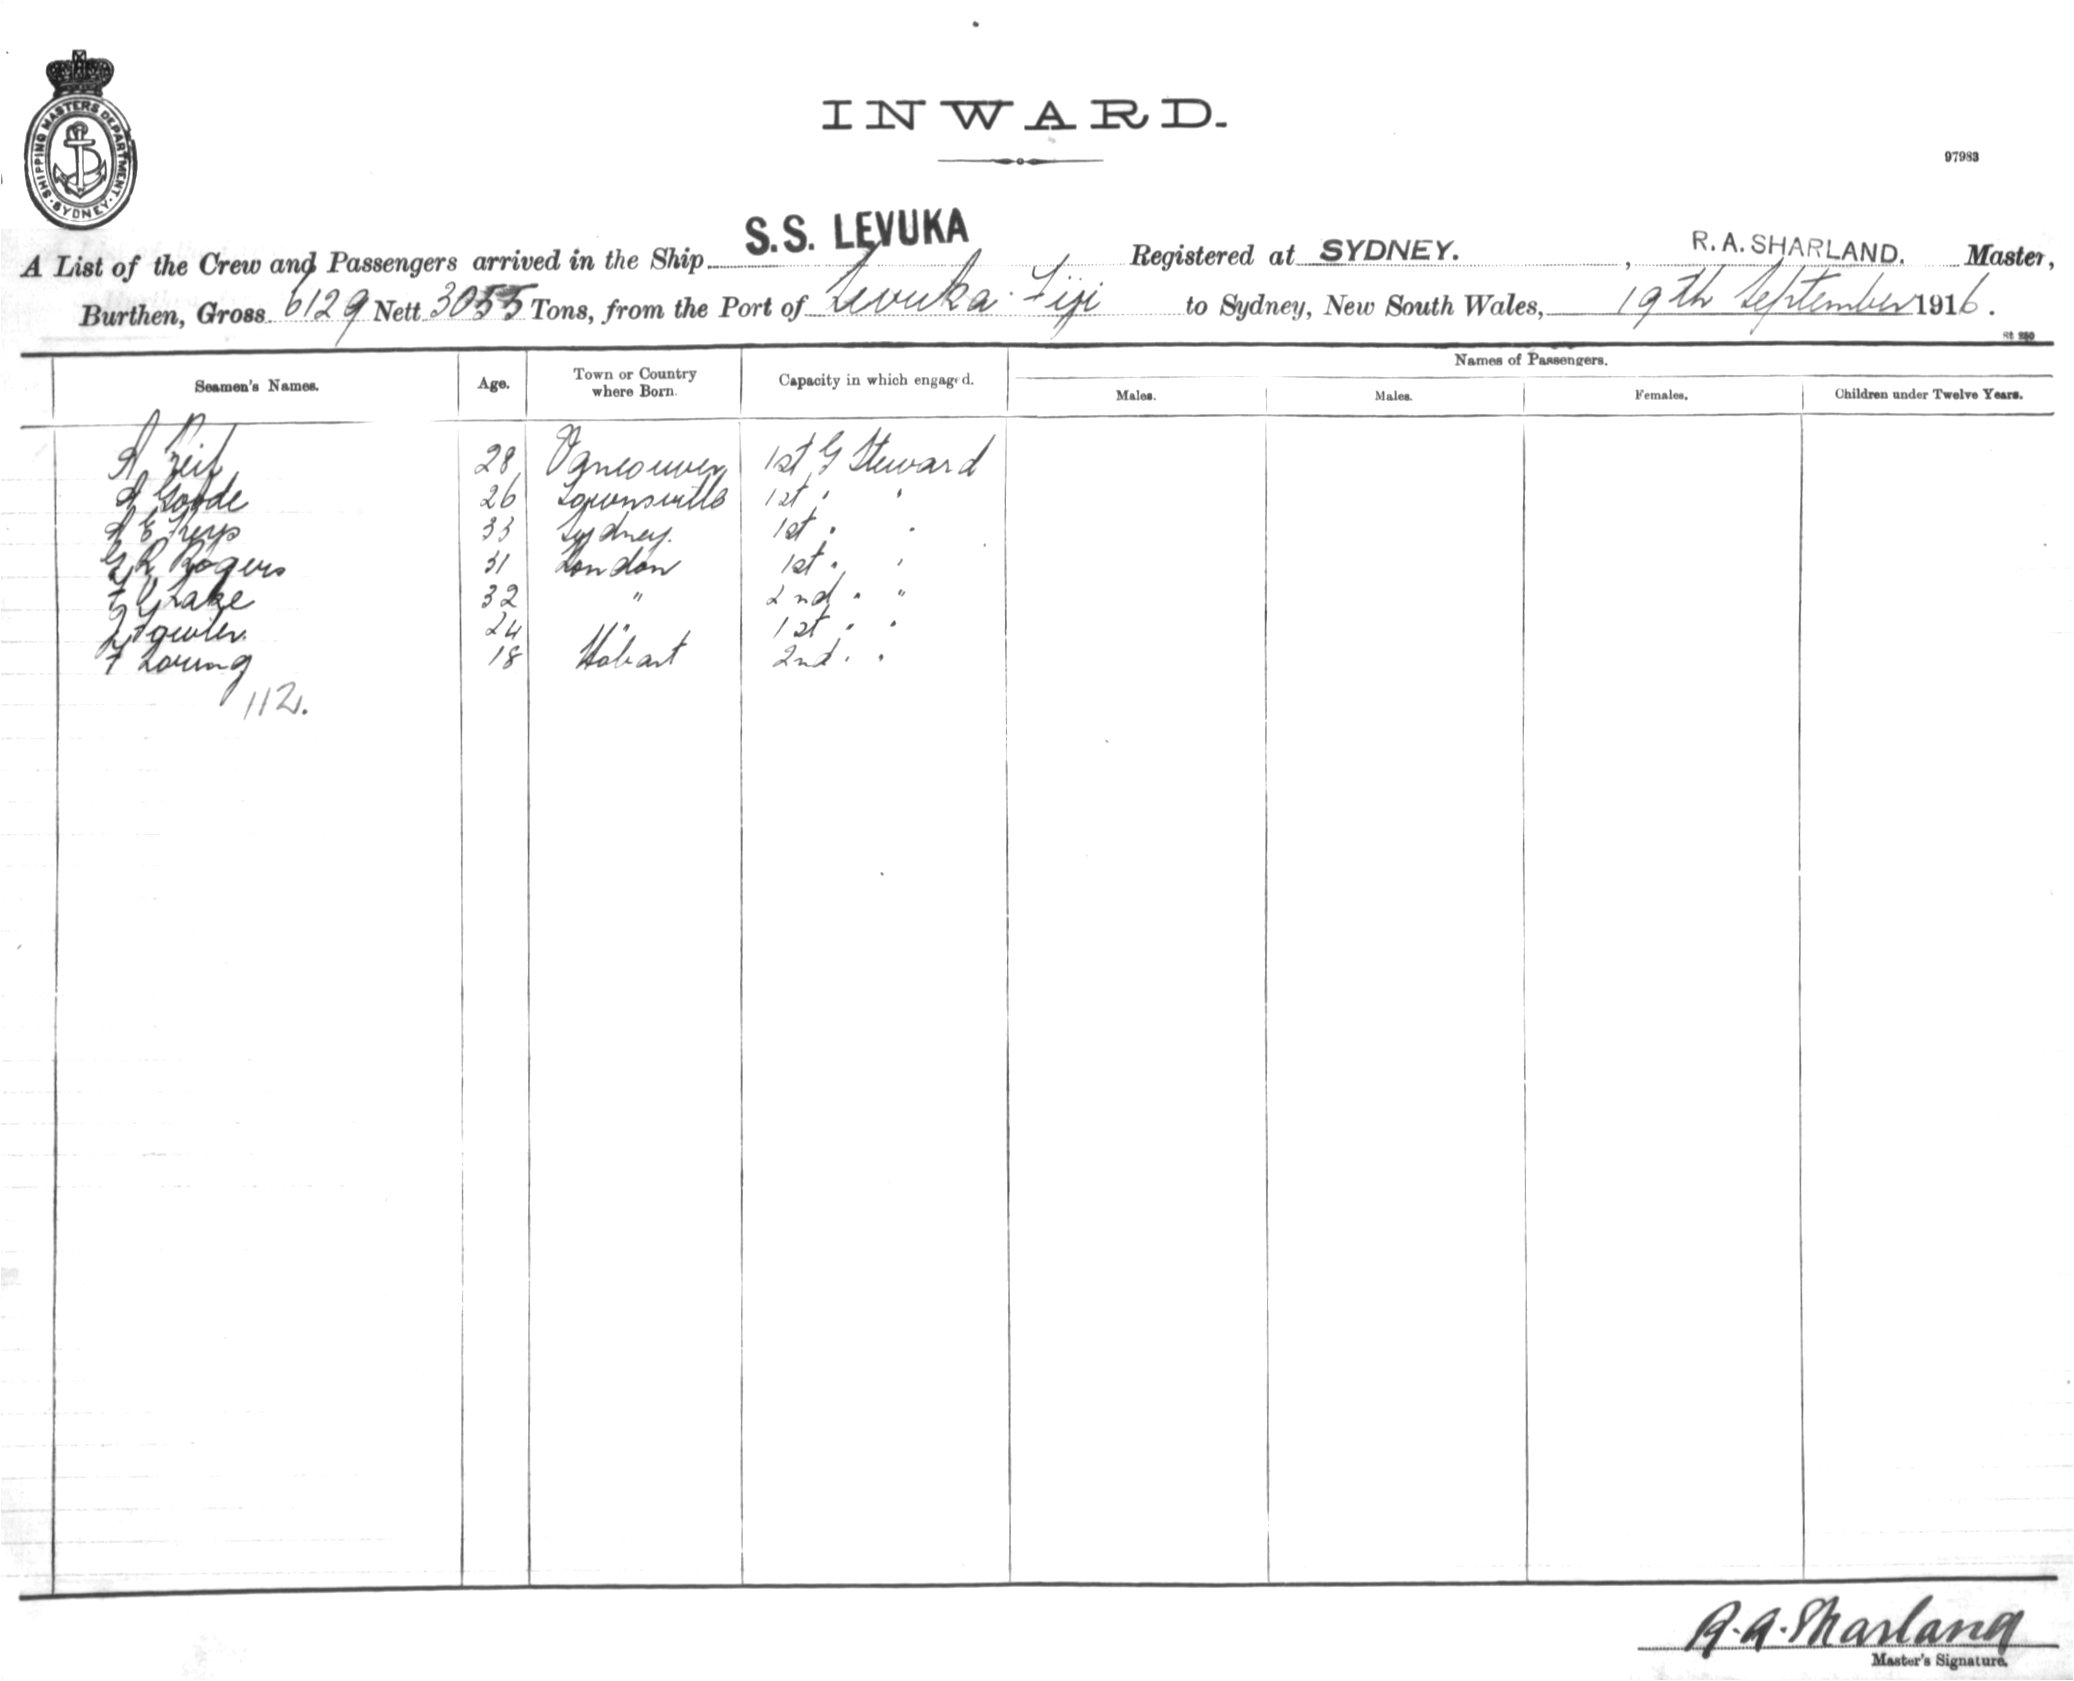 SHIPPING MASTERS DEPARTMENT. SYDNEY.
INWARD.
97983
A List of the Crew and Passengers arrived in the Ship S.S. LEVUKA Registered at SYDNEY. , R. A. SHARLAND. Master,
Burthen, Gross 6129 Nett 3055 Tons, from the Port of Levuka. Fiji to Sydney, New South Wales, 19th September 1916.
Names of Passengers.
Seamen's Names. Age. Town or Country where Born. Capacity in which engaged. Males. Males. Females. Children under Twelve Years.
A 28 Vancouver 1st G Steward
A Goode 26 Townsville 1st " "
A E 33 Sydney. 1st " "
G R Rogers 31 London 1st " "
F G Lake 32 " 2nd " "
Fowler. 24 " 1st " "
F Young 18 Hobart 2nd " "
112.
R. A. Sharland
Master's Signature.